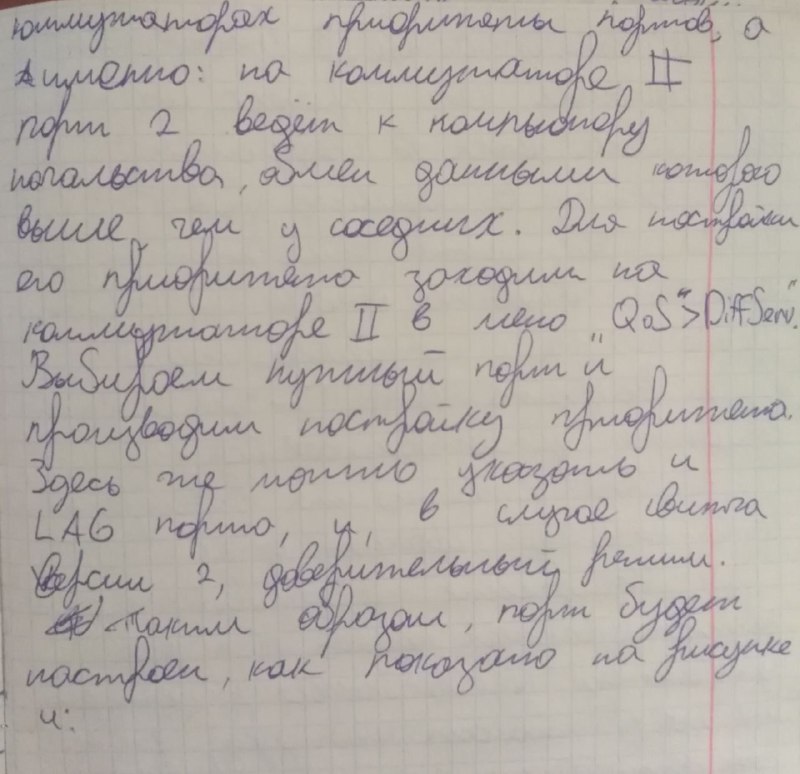 коммутаторах приоритеты портов, а
именно: на коммутаторе II
порт 2 ведёт к компьютеру
начальства, обмен данными которого
выше, чем у соседних. Для настройки
его приоритета заходим на
коммутаторе II в меню „QoS“>DiffServ“.
Выбираем нужный порт и
производим настройку приоритета.
Здесь же можно указать и
LAG порта, и, в случае свитча
версии 2, доверительный режим.
Таким образом, порт будет
настроен, как показано на рисунке
4: